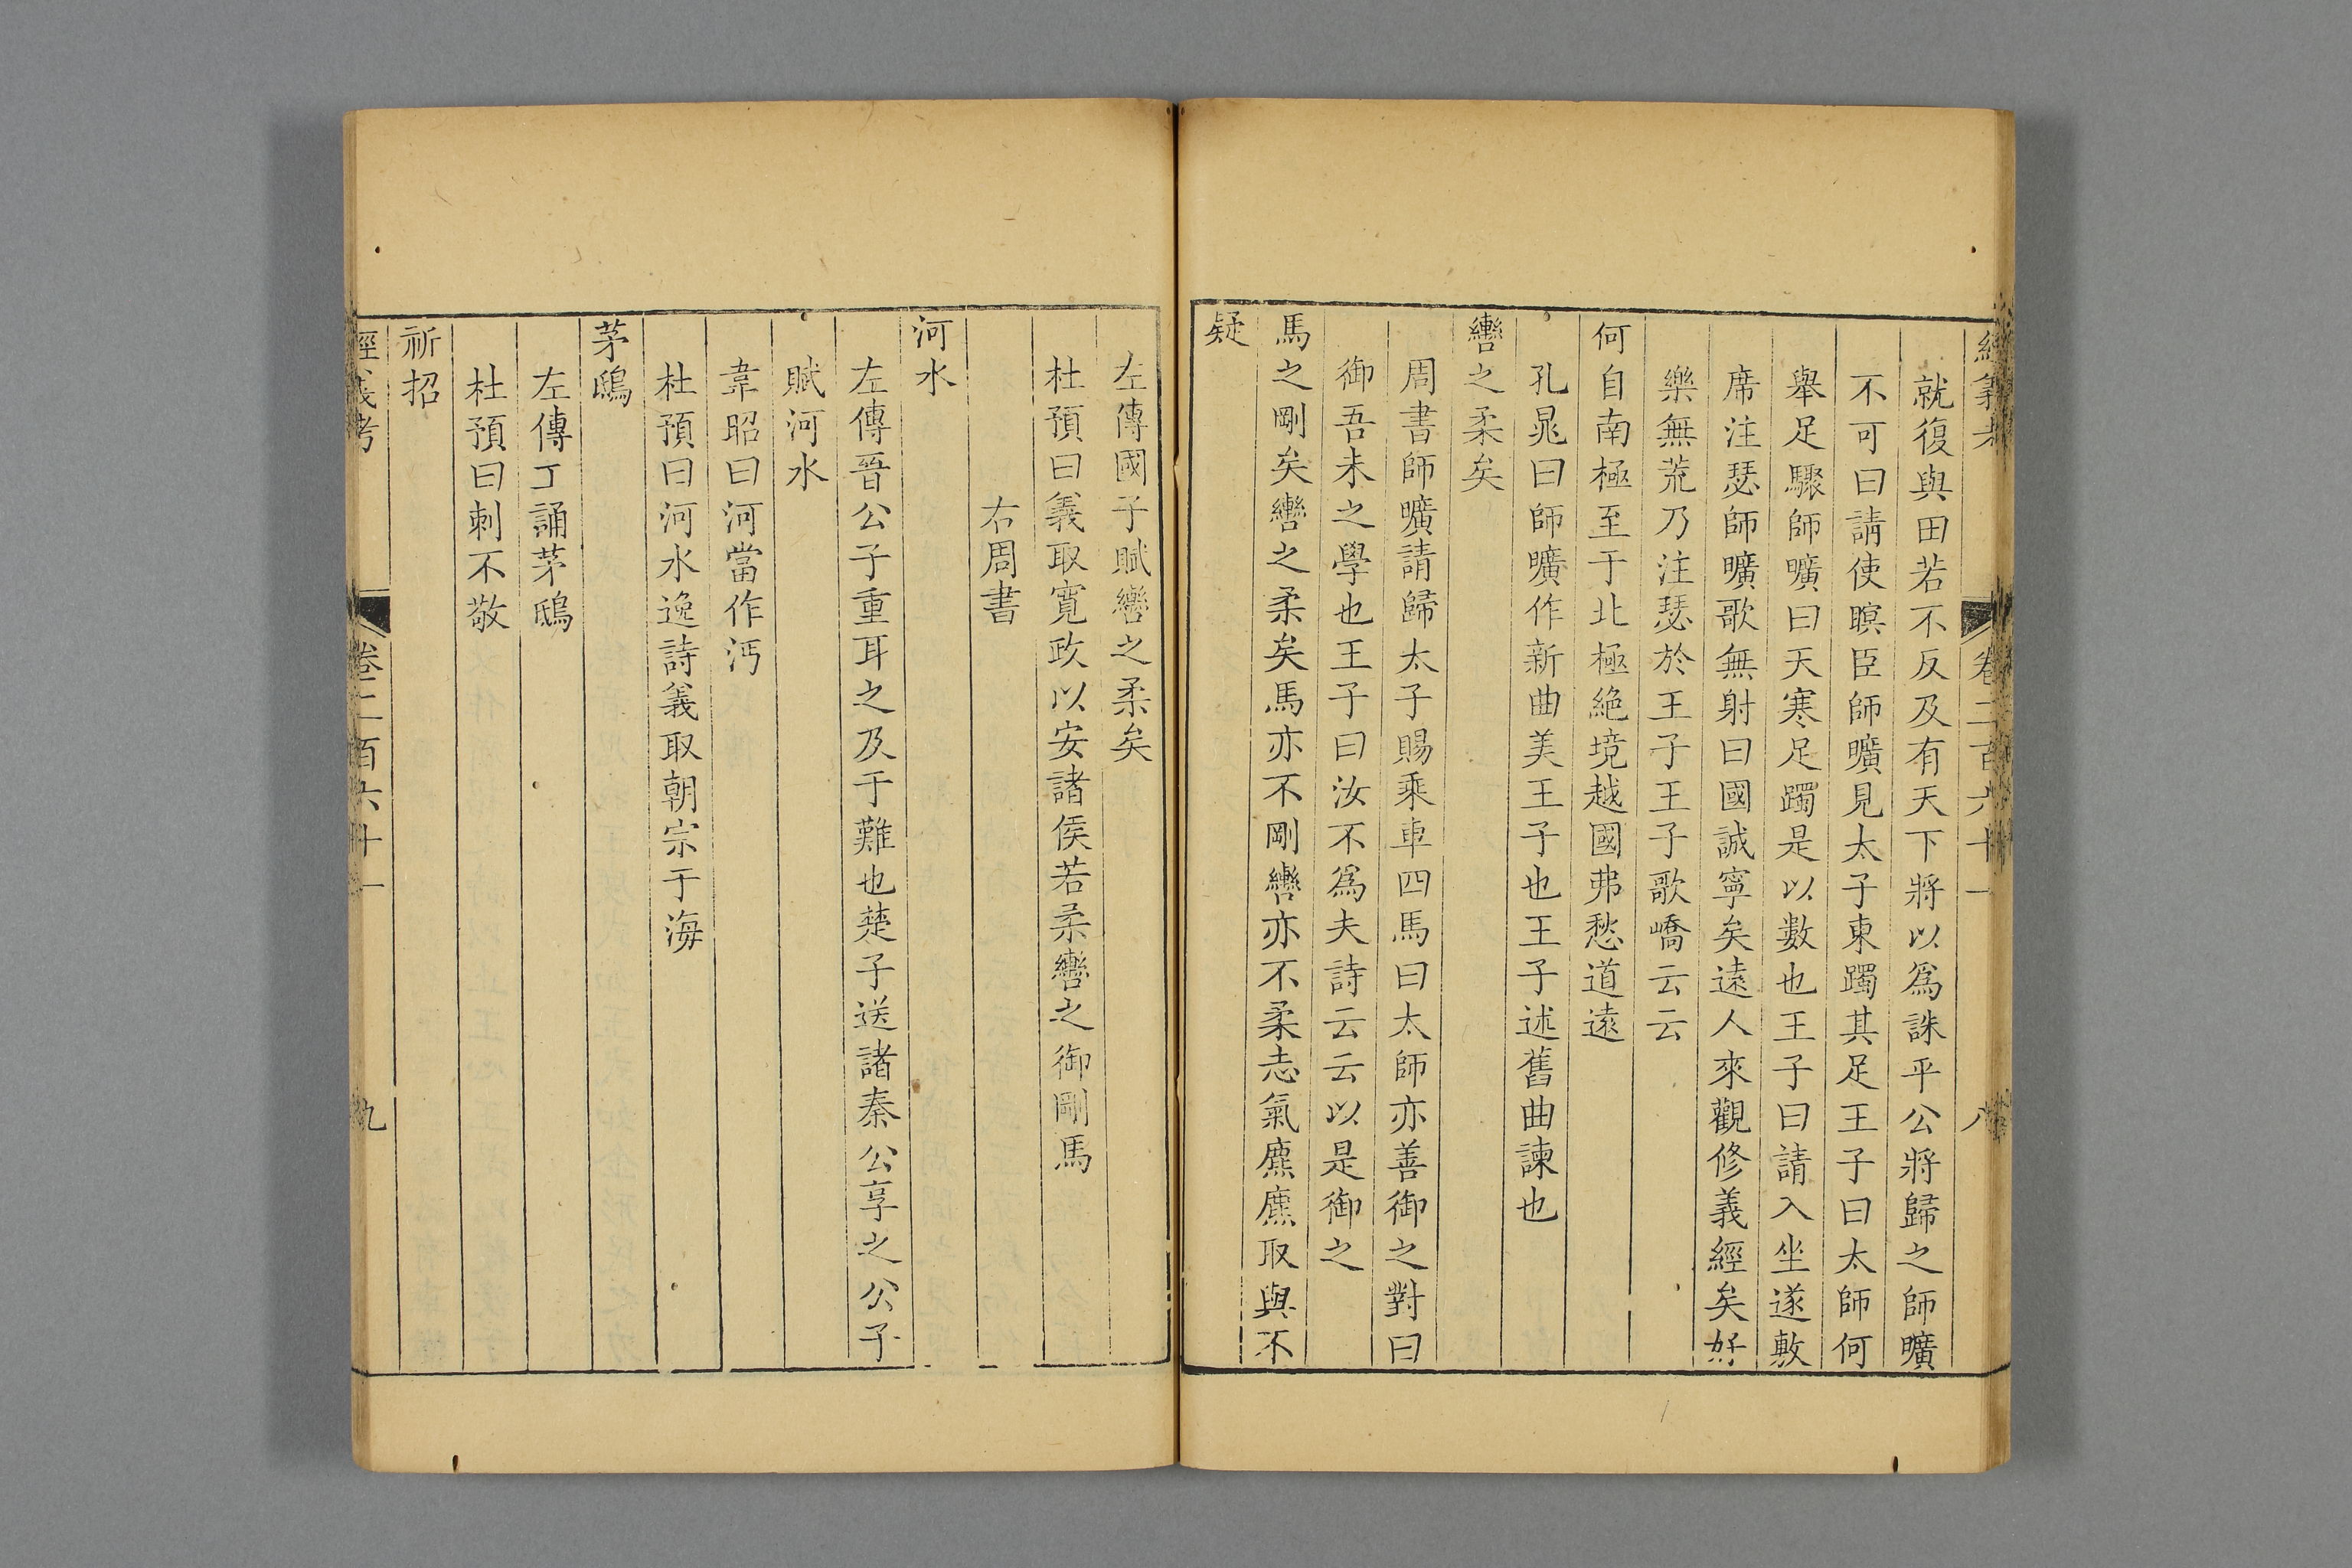 經義考 卷二百六十一 八
就復與田若不反及有天下將以爲誅平公將歸之師曠
不可曰請使瞑臣師曠見太子東躅其足王子曰太師何
舉足驟師曠曰天寒足躅是以數也王子曰請入坐遂敷
席注瑟師曠歌無射曰國誠寧矣遠人來觀修義經矣好
樂無荒乃注瑟於王子王子歌嶠云云
何自南極至于北極絶境越國弗愁道遠
孔晁曰師曠作新曲美王子也王子述舊曲諫也
轡之柔矣
周書師曠請歸太子賜乘車四馬曰太師亦善御之對曰
御吾未之學也王子曰汝不爲夫詩云云以是御之
馬之剛矣轡之柔矣馬亦不剛轡亦不柔志氣麃麃取與不
疑
左傳國子賦轡之柔矣
杜預曰義取寬政以安諸侯若柔轡之御剛馬
右周書
河水
左傳晉公子重耳之及于難也楚子送諸秦公享之公子
賦河水
韋昭曰河當作沔
杜預曰河水逸詩義取朝宗于海
茅鴟
左傳工誦茅鴟
杜預曰刺不敬
祈招
經義考 卷二百六十一 九